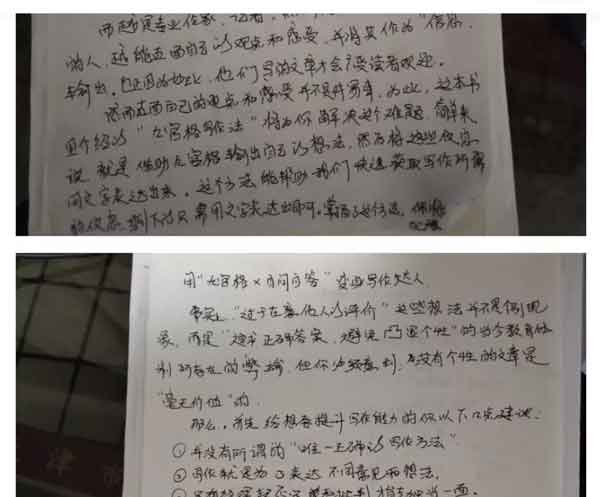 而越是专业作家、记者
的人，越能直面自己的观点和感受，并将其作为"信息
输出。也正因为如此，他们写的文章才会受读者欢迎。
然而直面自己的观点和感受并不是件易事，为此，这本书
介绍的"九宫格写作法"将为你解决这个难题，简单来
说，就是借助九宫格输出自己的想法，然后将这些信息
用文字表达出来。这个方法能帮助我们快速获取写作所需
的信息，剩下的只需用文字表达出即可。掌握了这个方法，你
用"九宫格×自问自答"变身写作达人
事实上"过于在意他人的评价"这些想法并不是个别现
象，而是"追求正确答案，避免凸显个性"的当今教育体
制所存在的弊端，但你必须意识到，没有个性的文章是
"毫无价值"的。
那么，首先给想要提升写作能力的你以下几点建议：
①并没有所谓的"唯一正确的写作方法"
②写作就是为了表达不同意见和想法。